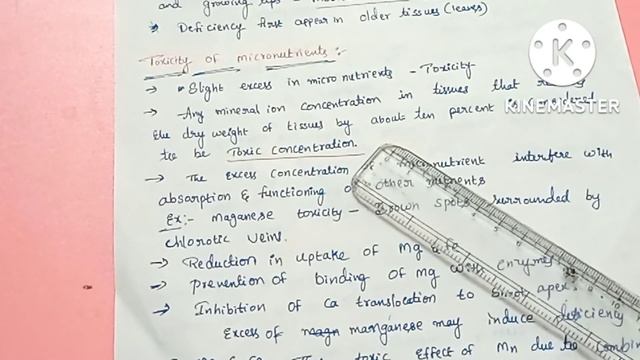 and growing tips -
* Deficiency first appear in older tissues (leaves)
Toxicity of micronutrients :-
→ Slight excess in micronutrients - Toxicity
→ Any mineral ion concentration in tissues that
the dry weight of tissues by about ten percent is
to be Toxic Concentration.
→ The excess Concentration micronutrient interfere with
absorption & functioning of other nutrients
Ex:- maganese toxicity - Brown spots surrounded by
chlorotic veins.
→ Reduction in uptake of Mg & Fe
→ prevention of binding of Mg with enzymes
→ Inhibition of Ca translocation to shoot apex.
Excess of manganese may induce deficiency
toxic effect of Mn due
K
KINEMASTER